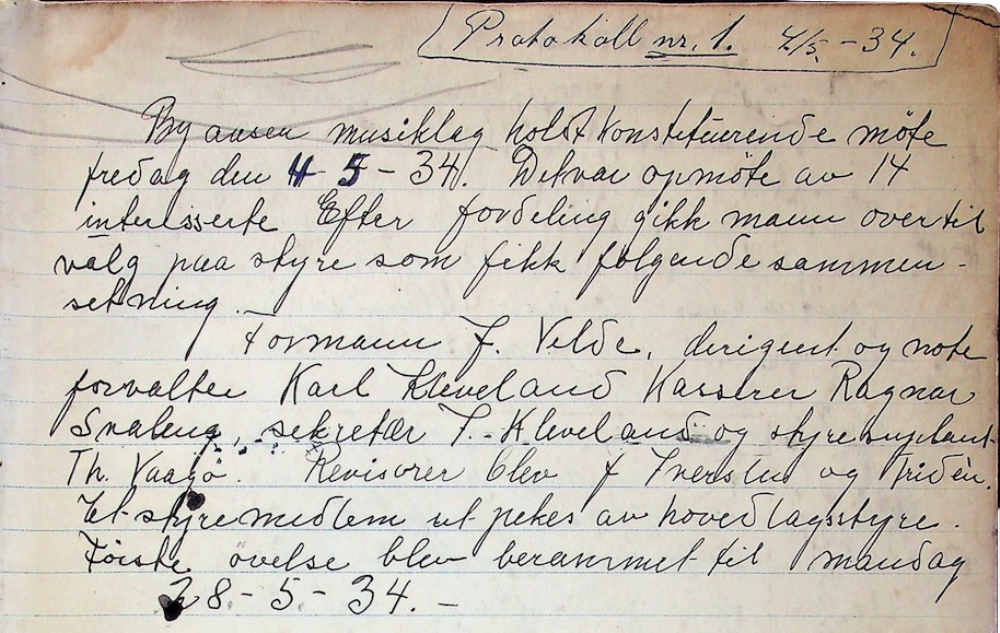 Protokoll nr. 1. 4/5 - 34.
Byaasen musiklag holdt konstituerende möte
fredag den 4 - 5 - 34. Det var opmöte av 14
interisserte Efter fordeling gikk mann over til
valg paa styre som fikk følgende sammen-
setning.
Formann J. Velde, dirigent og note
forvalter Karl Kleveland Kasserer Ragnar
Svaleng, sekretær T. Kleveland og styresuplant
Th. Vaagö. Revisorer blev J Iversen og Fridèn.
Et styremedlem ut pekes av hovedlagsstyre.
Förske övelse blev berammet til mandag
28. - 5 - 34. -